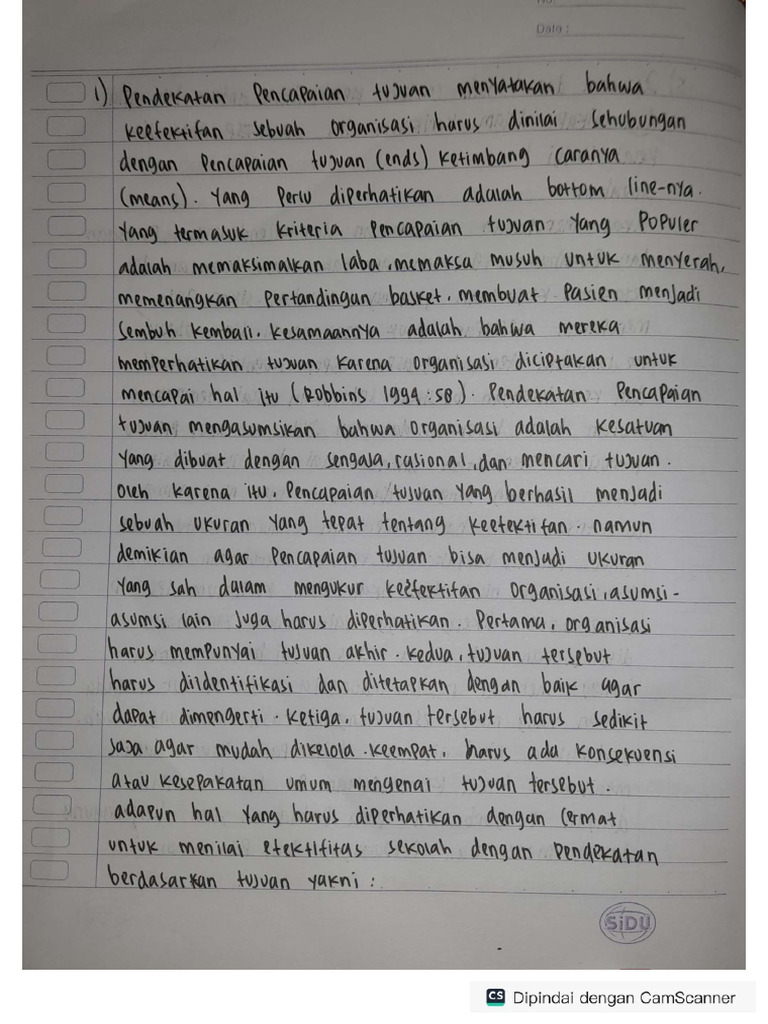 No:
Date :
1) Pendekatan Pencapaian tujuan menyatakan bahwa
keefektifan sebuah organisasi harus dinilai sehubungan
dengan Pencapaian tujuan (ends) ketimbang caranya
(means). Yang Perlu diperhatikan adalah bottom line-nya.
Yang termasuk kriteria Pencapaian tujuan Yang Populer
adalah memaksimalkan laba, memaksa musuh untuk menyerah,
memenangkan Pertandingan basket, membuat Pasien menjadi
Sembuh kembali. kesamaannya adalah bahwa mereka
memperhatikan tujuan karena organisasi diciptakan untuk
mencapai hal itu (Robbins 1994:58). Pendekatan Pencapaian
tujuan mengasumsikan bahwa organisasi adalah kesatuan
Yang dibuat dengan sengaja, rasional, dan mencari tujuan.
Oleh karena itu, Pencapaian tujuan Yang berhasil menjadi
sebuah ukuran Yang tepat tentang keefektifan. namun
demikian agar Pencapaian tujuan bisa menjadi ukuran
Yang sah dalam mengukur keefektifan organisasi, asumsi-
asumsi lain juga harus diperhatikan. Pertama, organisasi
harus mempunyai tujuan akhir. kedua, tujuan tersebut
harus diidentifikasi dan ditetapkan dengan baik agar
dapat dimengerti. ketiga, tujuan tersebut harus sedikit
saja agar mudah dikelola. keempat, harus ada konsekuensi
atau kesepakatan umum mengenai tujuan tersebut.
adapun hal Yang harus diperhatikan dengan cermat
untuk menilai efektifitas sekolah dengan Pendekatan
berdasarkan tujuan yakni :
SiDU
CS Dipindai dengan CamScanner